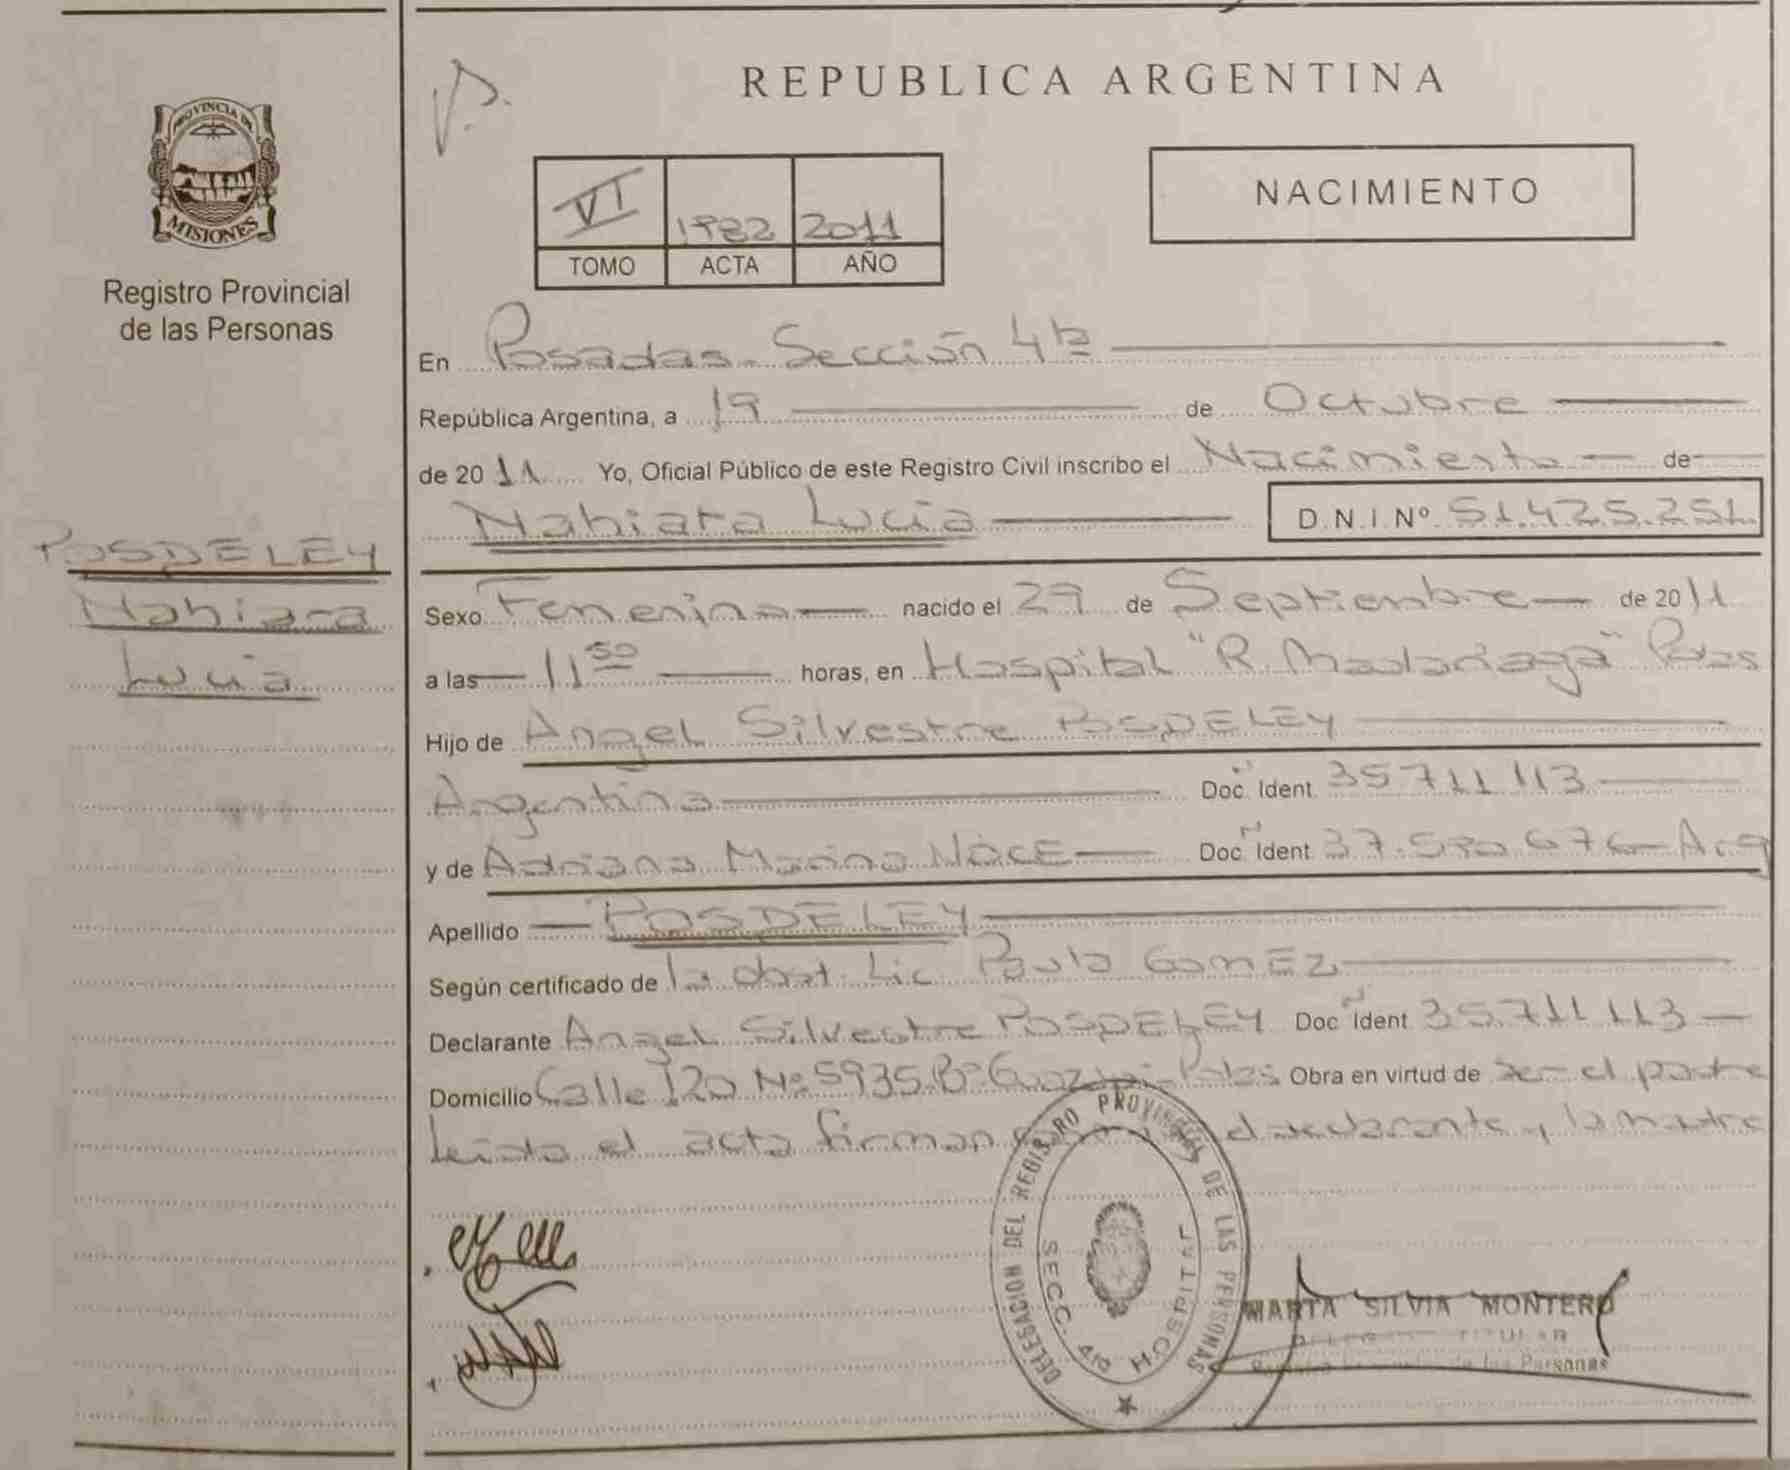 REPUBLICA ARGENTINA
PROVINCIA DE
MISIONES
Registro Provincial
de las Personas
VI 2011
TOMO ACTA AÑO
NACIMIENTO
En Posadas - Sección 4ta
República Argentina, a 19 de Octubre
de 2011 Yo, Oficial Público de este Registro Civil inscribo el Nacimiento de
Nahiara Lucía D.N.I Nº 51.425.251
POSDELEY
Nahiara
Lucía
Sexo Femenino nacido el 29 de Septiembre de 2011
a las 11 50 horas, en Hospital "R. Madariaga" Pdas
Hijo de Angel Silvestre POSDELEY
Argentina Doc. Ident 35711113
y de Adriana Marina Doc. Ident Arg
Apellido POSDELEY
Según certificado de la obst. Lic. Paula GomEz
Declarante Angel Silvestre POSDELEY Doc Ident 35.711.113
Domicilio Calle 120 Nº 5935 Bº Pdas Obra en virtud de ser el padre
Leída el acta firman declarante y la madre
DELEGACION DEL REGISTRO PROVINCIAL DE LAS PERSONAS
SECC. 4ta HOSPITAL
MARTA SILVIA MONTERO
TITULAR
de las Personas